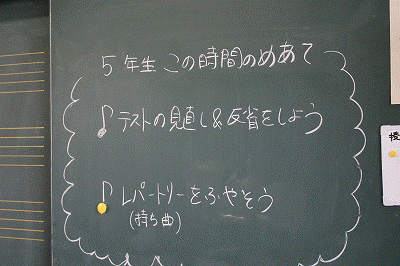 5年生 この時間のめあて
♪テストの見直し&反省をしよう
♪レパートリーをふやそう
(持ち曲)